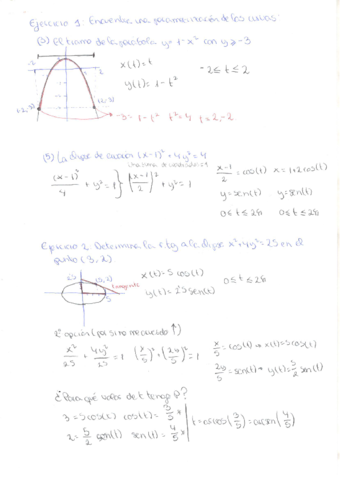 Ejercicio 1. Encuentre una parametrización de las curvas:
(3) El tramo de la parábola y = 1 - x² con y ≥ -3
x(t) = t
-2 ≤ t ≤ 2
y(t) = 1 - t²
-3 = 1 - t² t² = 4 t = 2, -2
(5) La elipse de ecuación (x-1)² + 4y² = 4
(x-1)²/4 + y² = 1 } (x-1/2)² + y² = 1
x-1/2 = cos(t) x = 1 + 2cos(t)
y = sen(t) y = sen(t)
0 ≤ t ≤ 2π 0 ≤ t ≤ 2π
Ejercicio 2. Determine la r. tg a la elipse x² + 4y² = 25 en el
punto (3, 2)
x(t) = 5 cos(t)
0 ≤ t ≤ 2π
y(t) = 2'5 sen(t)
2ª opción (por si no me acuerdo ↑)
x²/25 + 4y²/25 = 1 (x/5)² + (2y/5)² = 1
x/5 = cos(t) → x(t) = 5cos(t)
2y/5 = sen(t) → y(t) = 5/2 sen(t)
¿Para qué valor de t tengo P?
3 = 5cos(t) cos(t) = 3/5
2 = 5/2 sen(t) sen(t) = 4/5
t = arccos(3/5) = arcsen(4/5)